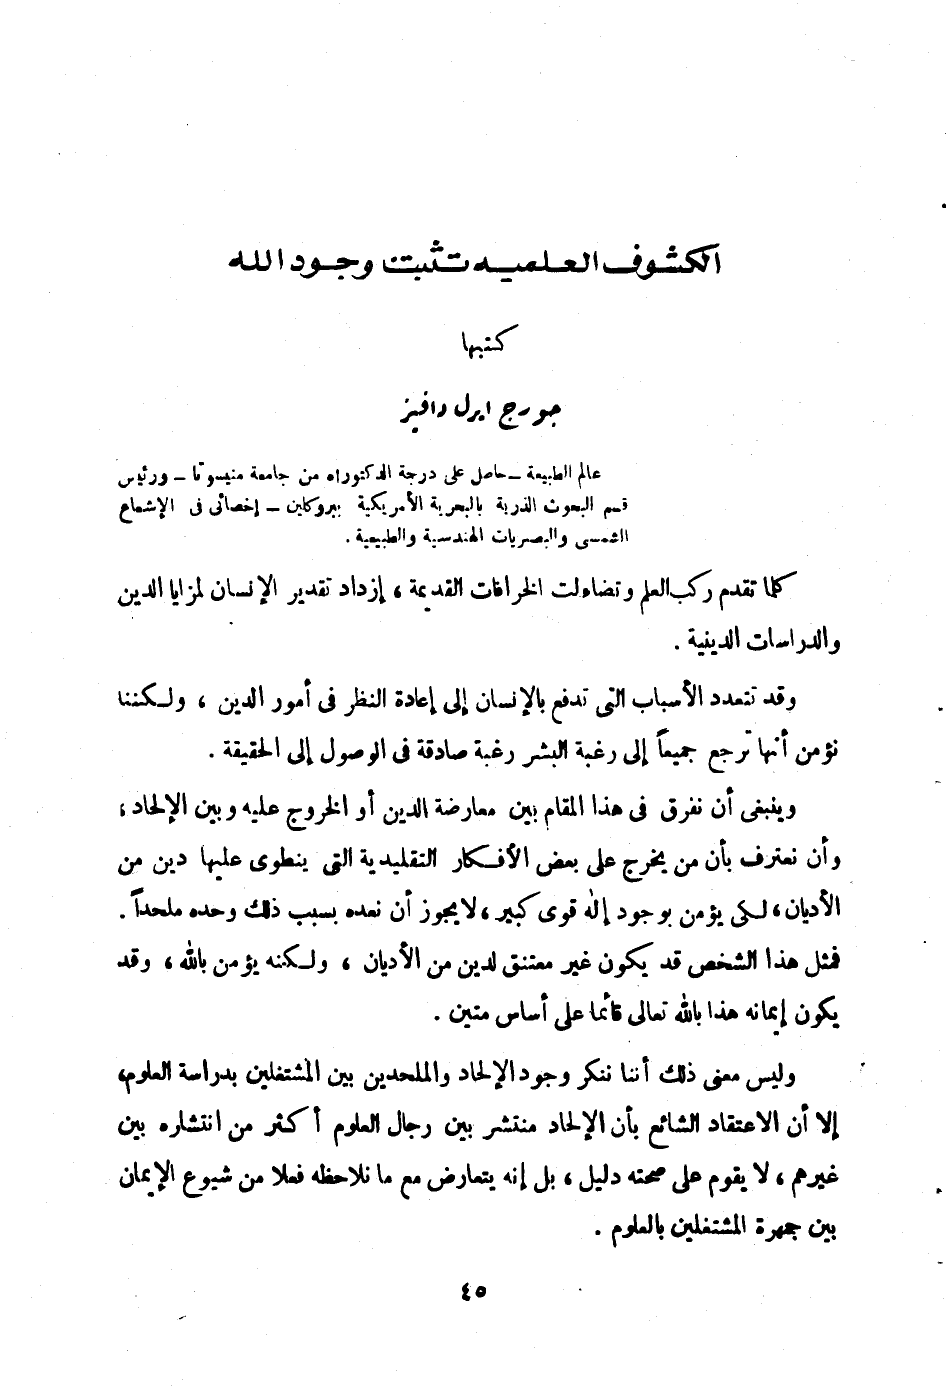 الكشوف العلمية تثبت وجود الله
كتبها
جورج ايرل دافيز
عالم الطبيعة – حاصل على درجة الدكتوراه من جامعة منيسوتا – ورئيس
قسم البحوث الذرية بالبحرية الأمريكية ببروكلين – إخصائى فى الإشعاع
الشمسى والبصريات الهندسية والطبيعية .
كلما تقدم ركب العلم وتضاءلت الخرافات القديمة ، إزداد تقدير الإنسان لمزايا الدين
والدراسات الدينية .
وقد تتعدد الأسباب التى تدفع بالإنسان إلى إعادة النظر فى أمور الدين ، ولكننا
نؤمن أنها ترجع جميعاً إلى رغبة البشر رغبة صادقة فى الوصول إلى الحقيقة .
وينبغى أن نفرق فى هذا المقام بين معارضة الدين أو الخروج عليه وبين الإلحاد ،
وأن نعترف بأن من يخرج على بعض الأفكار التقليدية التى ينطوى عليها دين من
الأديان ، لكى يؤمن بوجود إله قوى كبير ، لا يجوز أن نعده بسبب ذلك وحده ملحداً .
فمثل هذا الشخص قد يكون غير معتنق لدين من الأديان ، ولكنه يؤمن بالله ، وقد
يكون إيمانه هذا بالله تعالى قائما على أساس متين .
وليس معنى ذلك أننا ننكر وجود الإلحاد والملحدين بين المشتغلين بدراسة العلوم،
إلا أن الاعتقاد الشائع بأن الإلحاد منتشر بين رجال العلوم أكثر من انتشاره بين
غيرهم ، لا يقوم على صحته دليل ، بل إنه يتعارض مع ما نلاحظه فعلا من شيوع الإيمان
بين جمهرة المشتغلين بالعلوم .
٤٥